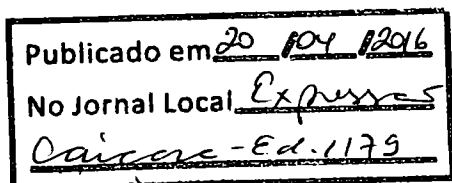 Publicado em 20 / 04 / 2016
No Jornal Local Expressão
Caiçara - Ed. 1179